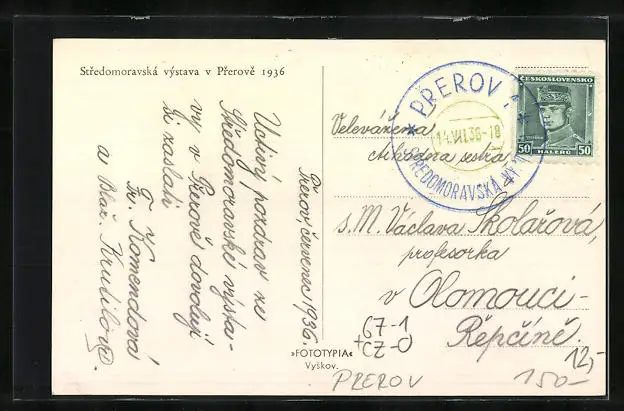 Středomoravská výstava v Přerově 1936
Přerov, červenec 1936.
Uctivý pozdrav ze
Středomoravské výsta-
vy v Přerově dovolují
si zaslati
Komendová
a Blaž. Krutilová
»FOTOTYPIA«
Vyškov.
PŘEROV 1
14.VII.36-18
STŘEDOMORAVSKÁ VÝ
ČESKOSLOVENSKO
50 HALÉŘŮ 50
Velevážená
ctihodná sestra
s. M. Václava Školařová,
profesorka
v Olomouci-
Řepčíně.
67-1
+CZ-O
12,-
PREROV
150-